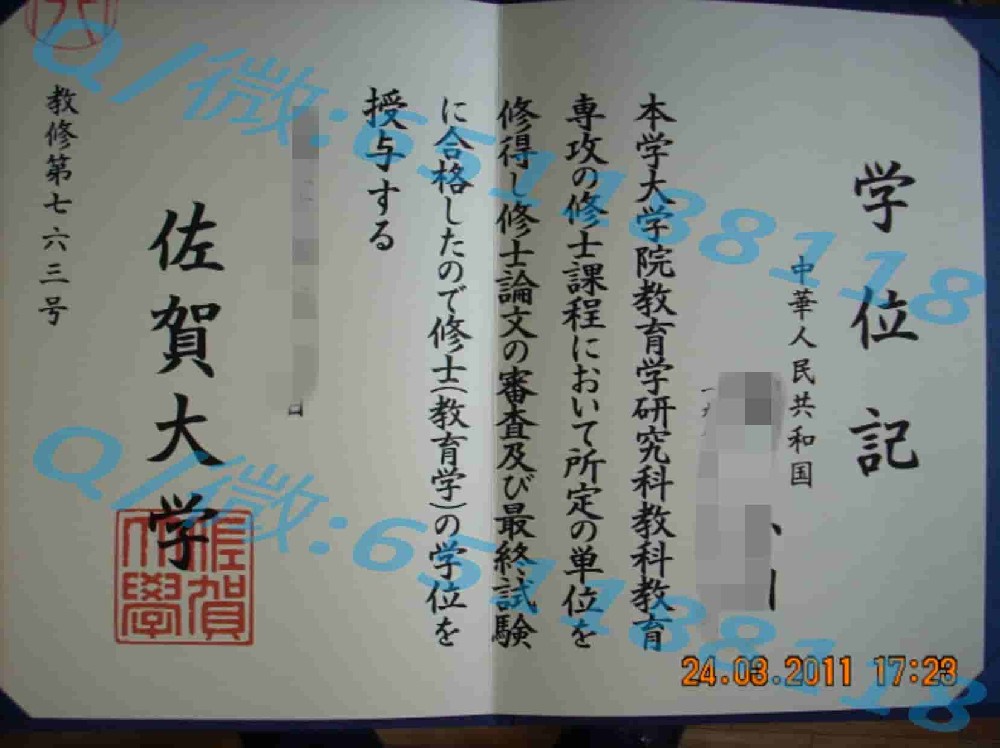 学位記
中華人民共和国
本学大学院教育学研究科教科教育
専攻の修士課程において所定の単位を
修得し修士論文の審査及び最終試験
に合格したので修士(教育学)の学位を
授与する
日
佐賀大学
佐賀大學
教修第七六三号
Q/微:651188118
Q/微:651188118
24.03.2011 17:23